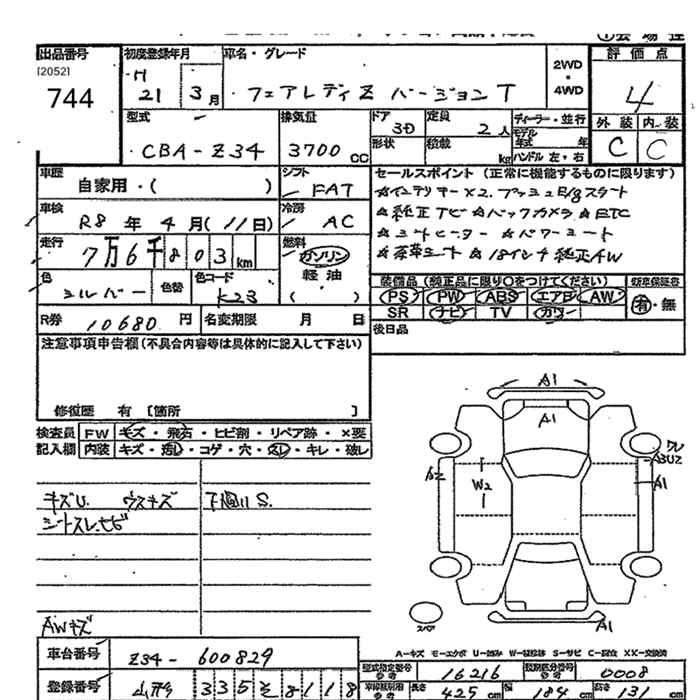 出品番号 初度登録年月 車名・グレード 評価点
[2052]
744
H 21 3月 フェアレディZ バージョンT 2WD・4WD 4
外装 内装
C C
型式 排気量 ドア 定員 ディーラー・並行
CBA-Z34 3700cc 3D 2人 モデル年式 年
形状 積載 kg ハンドル 左・右
車歴 シフト セールスポイント(正常に機能するものに限ります)
自家用・( ) FAT ☆インテリキー×2. プッシュE/gスタート
車検 冷房 ☆純正TV ☆バックカメラ ☆ETC
R8年4月(11日) AC ☆シートヒーター ☆パワーシート
走行 燃料 ☆本革シート ☆18インチ純正AW
7万6千803km ガソリン
軽油
( )
色 色替 色コード 装備品(純正品に限り○をつけてください) 新車保証書
シルバー K23 PS PW ABS エアB AW 有・無
SR ナビ TV カワ
R券 10680円 名変期限 月 日 後日品
注意事項申告欄(不具合内容等は具体的に記入して下さい)
修復歴 有 〔箇所 〕
検査員 FW キズ・飛石・ヒビ割・リペア跡・×要
記入欄 内装 キズ・汚レ・コゲ・穴・スレ・キレ・破レ
キズU. ウスキズ 下廻りS.
シートスレ.
AWキズ
A1
A1
A1
A1
W2
スペア
A-キズ E-エクボ U-凹み W-補修跡 S-サビ C-腐食 XX-交換済
車台番号 Z34-600829
型式指定番号 16216 類別区分番号 0008
登録番号 山形 335 そ 8118
長さ 425cm 幅 184cm 高さ 131